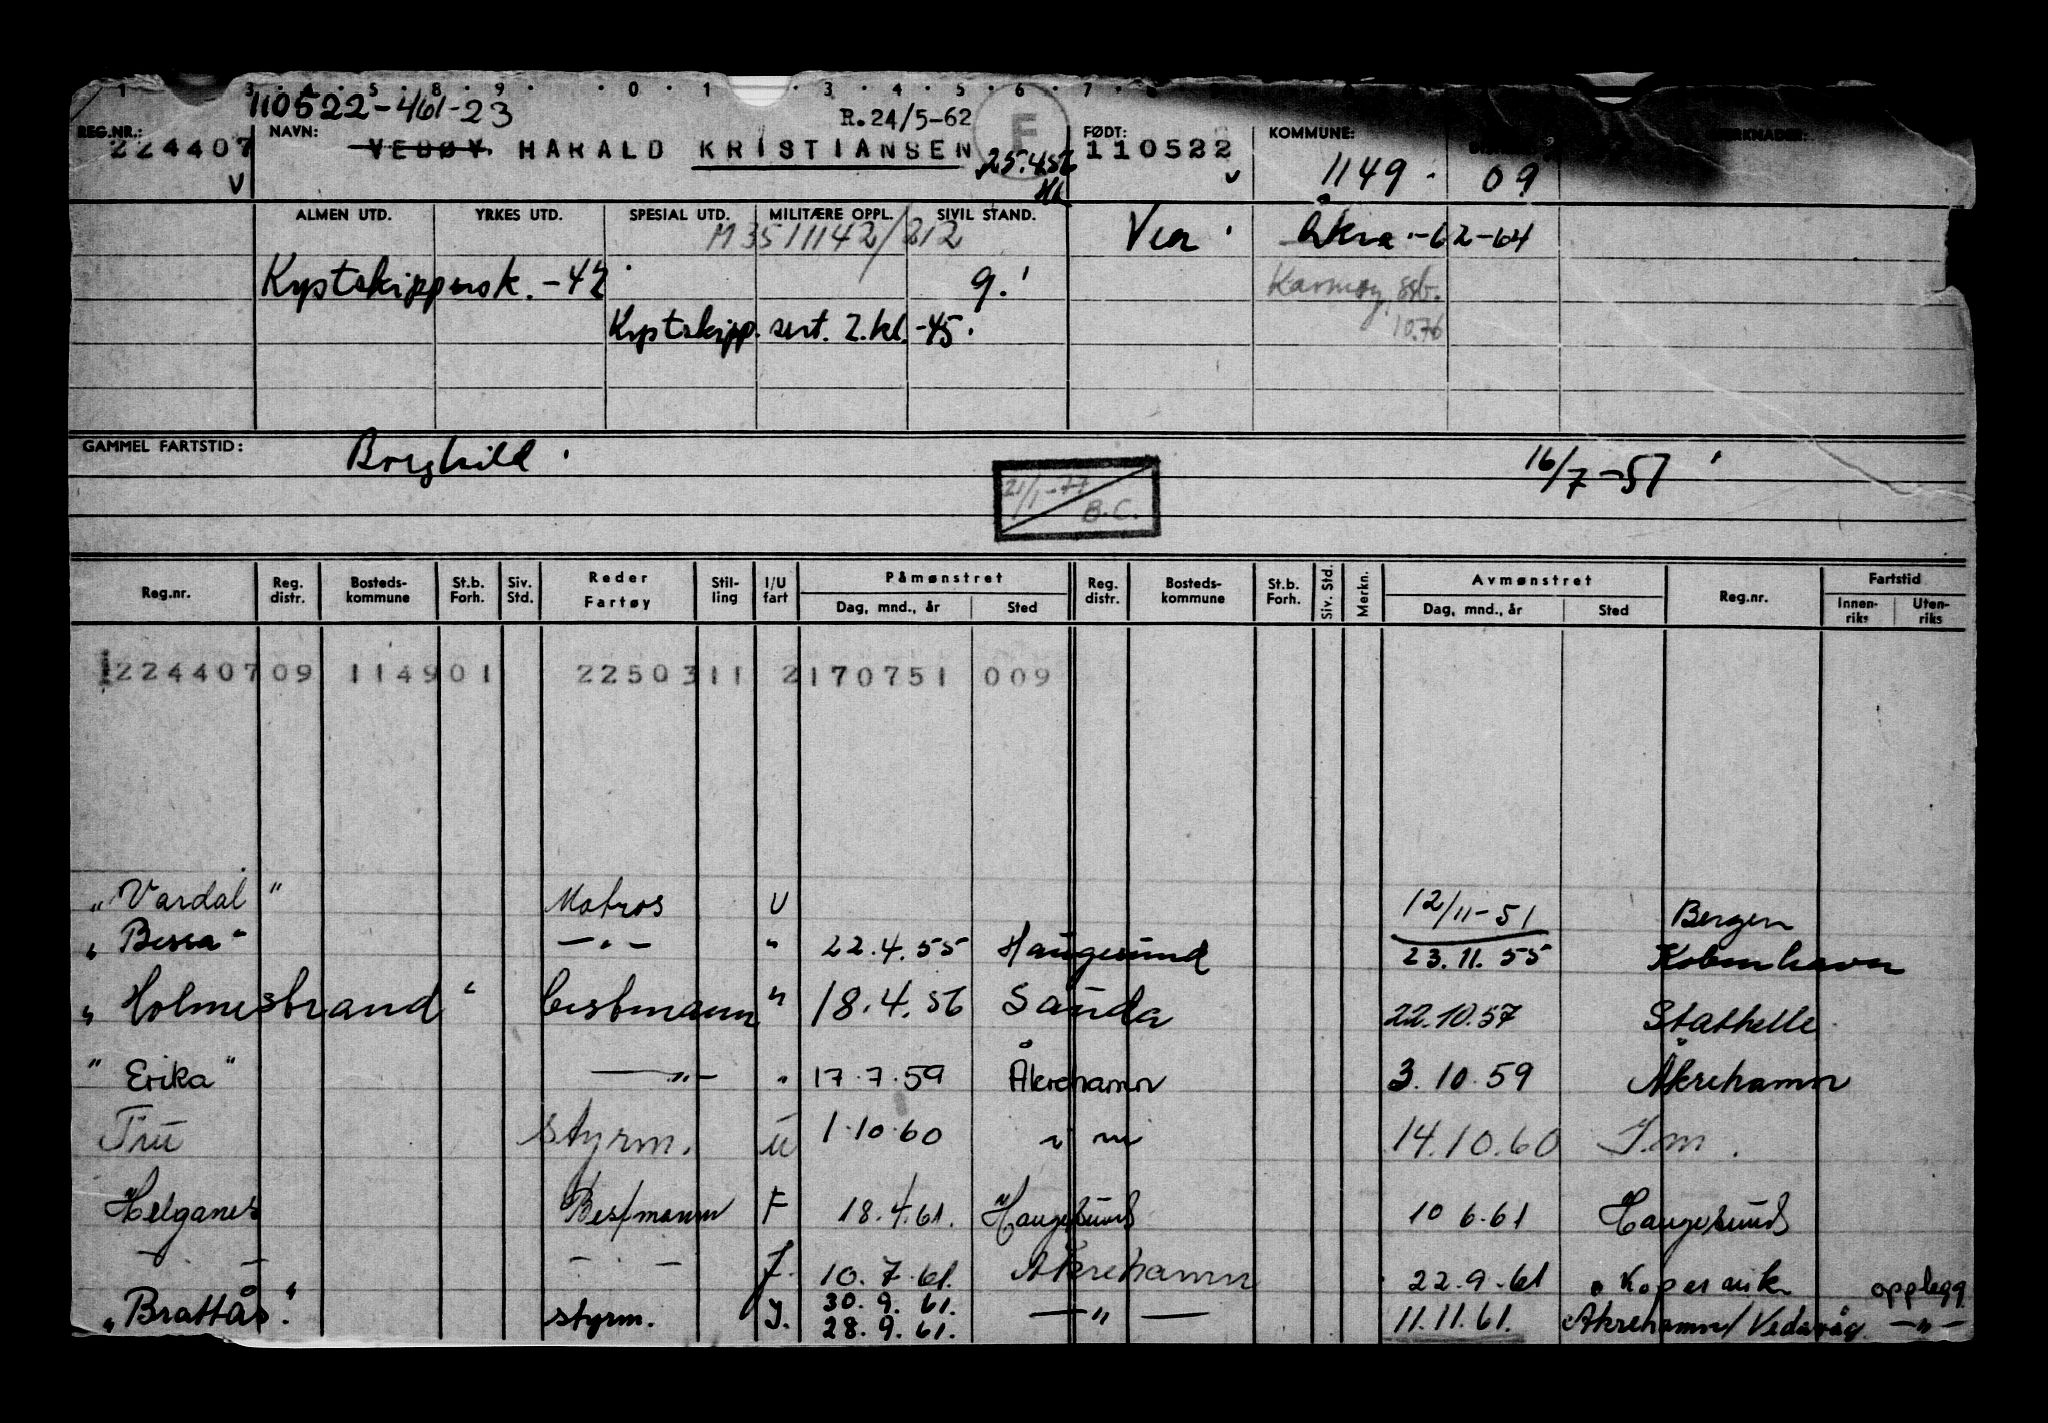 110522-461-23
R. 24/5-62
F
REG.NR.: 224407 NAVN: VEDØY HARALD KRISTIANSEN FØDT: 110522 KOMMUNE: 1149 09
v 25.4.56 v
ALMEN UTD. YRKES UTD. SPESIAL UTD. MILITÆRE OPPL. SIVIL STAND.
M 3511142/212 Vea Åkra -62-64
Kystskippersk. -42 9. Karmøy ssb.
Kystskipp. sert. 2. kl. -45. 10.76
GAMMEL FARTSTID: Borghild 16/7-51
21/1-77 B.C.
Reg.nr. Reg. distr. Bosteds-kommune St.b. Forh. Siv. Std. Reder Fartøy Stil-ling I/U fart Påmønstret Dag, mnd., år Sted Reg. distr. Bosteds-kommune St.b. Forh. Siv. Std. Merkn. Avmønstret Dag, mnd., år Sted Reg.nr. Fartstid Innen-riks Uten-riks
22440709 114901 2250311 2170751 009
"Vardal" Matros U 12/11-51 Bergen
"Bessa" —"— " 22.4.55 Haugesund 23.11.55 Kobenhavn
"Holmesbrand" bestmann " 18.4.56 Sauda 22.10.57 Stathelle
"Erika" —"— " 17.7.59 Åkrehamn 3.10.59 Åkrehamn
Tru styrm. U 1.10.60 " " 14.10.60
Helganes Bestmann F 18.4.61. Haugesund 10 6.61 Haugesund
— — — — 10.7.61. Åkrehamn 22.9.61 Kopervik opplegg
30.9.61.
"Brattås". styrm. 28.9.61. —"— 11.11.61. Åkrehamn/Vedavåg —"—